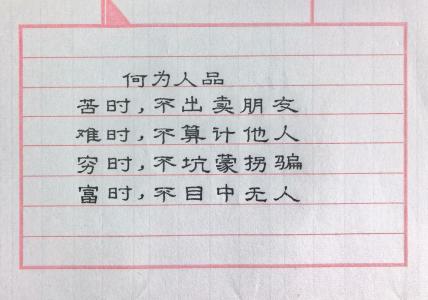 何为人品
苦时,不出卖朋友
难时,不算计他人
穷时,不坑蒙拐骗
富时,不目中无人